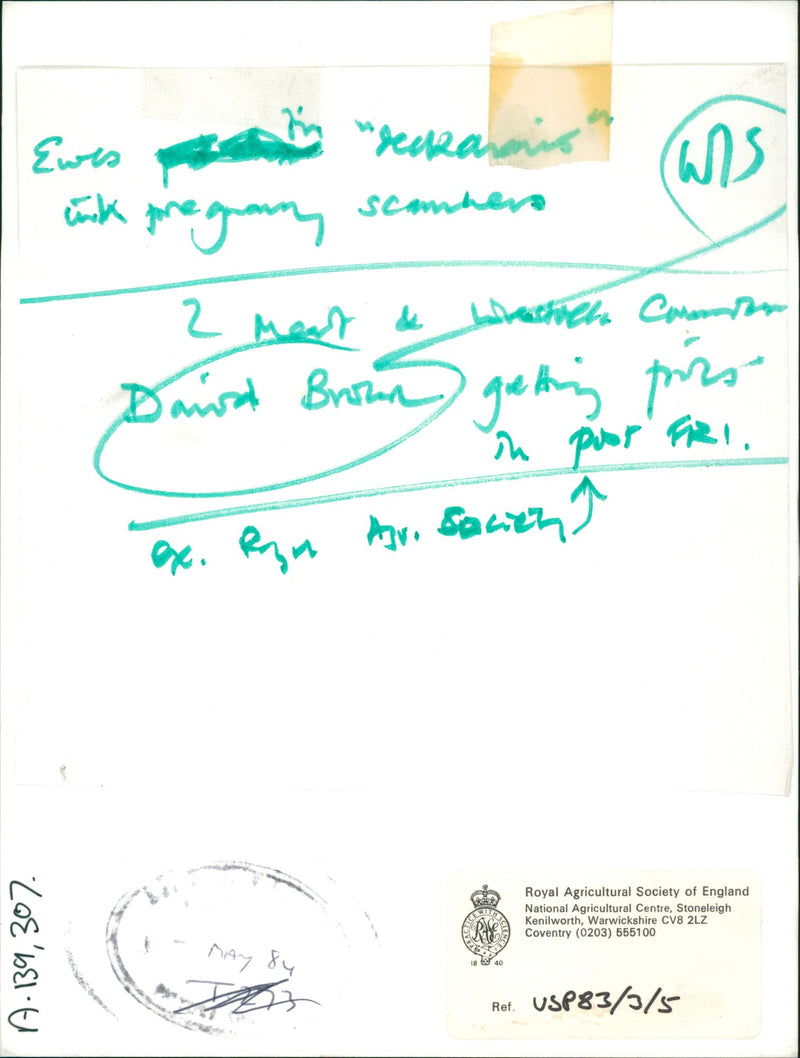 Ewes in " "
with pregnancy scanners
WPS
2 Meat & Livestock Commission
David Brown getting pics
in post FRI.
ex. Royal Agr. Society
A.139,307.
MAY 84
Royal Agricultural Society of England
National Agricultural Centre, Stoneleigh
Kenilworth, Warwickshire CV8 2LZ
Coventry (0203) 555100
PRACTICE WITH SCIENCE
18 40
Ref. USP83/3/5